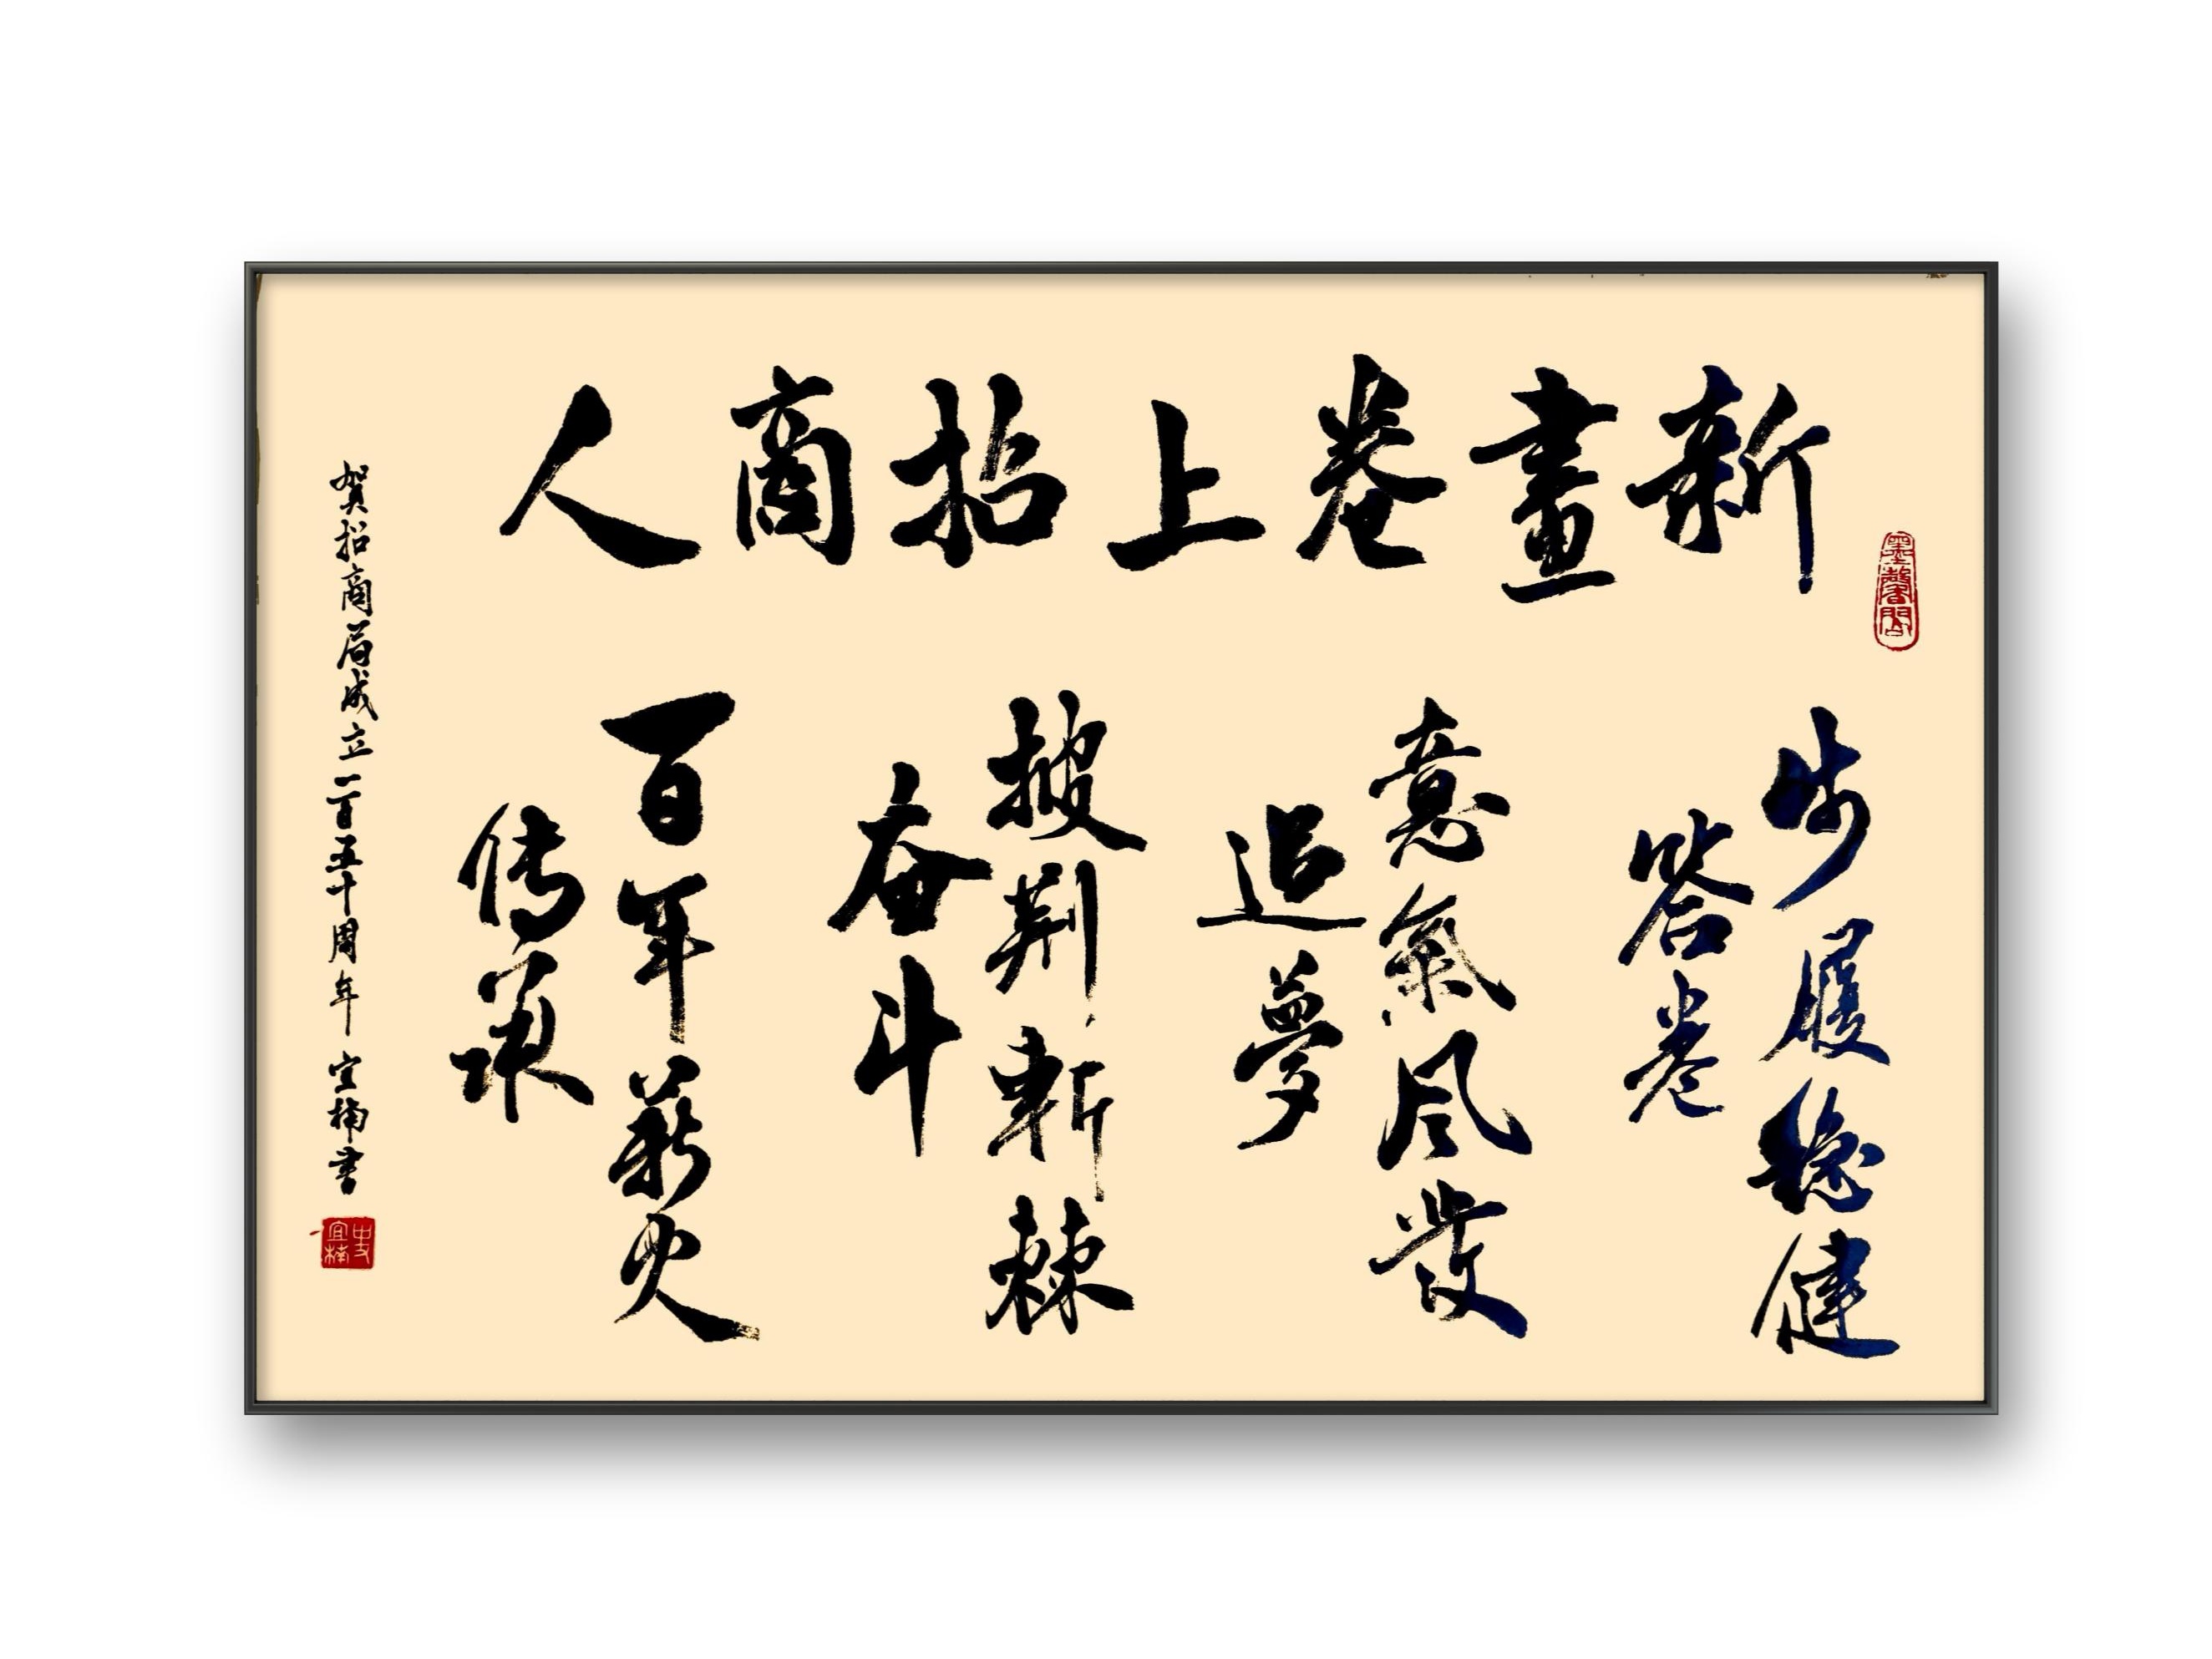 新畫卷上招商人
墨馨閣
步履稳健
答卷
意氣风發
追夢
披荆斬棘
奋斗
百年薪火
传承
贺招商局成立一百五十周年 宜楠书
史宜楠